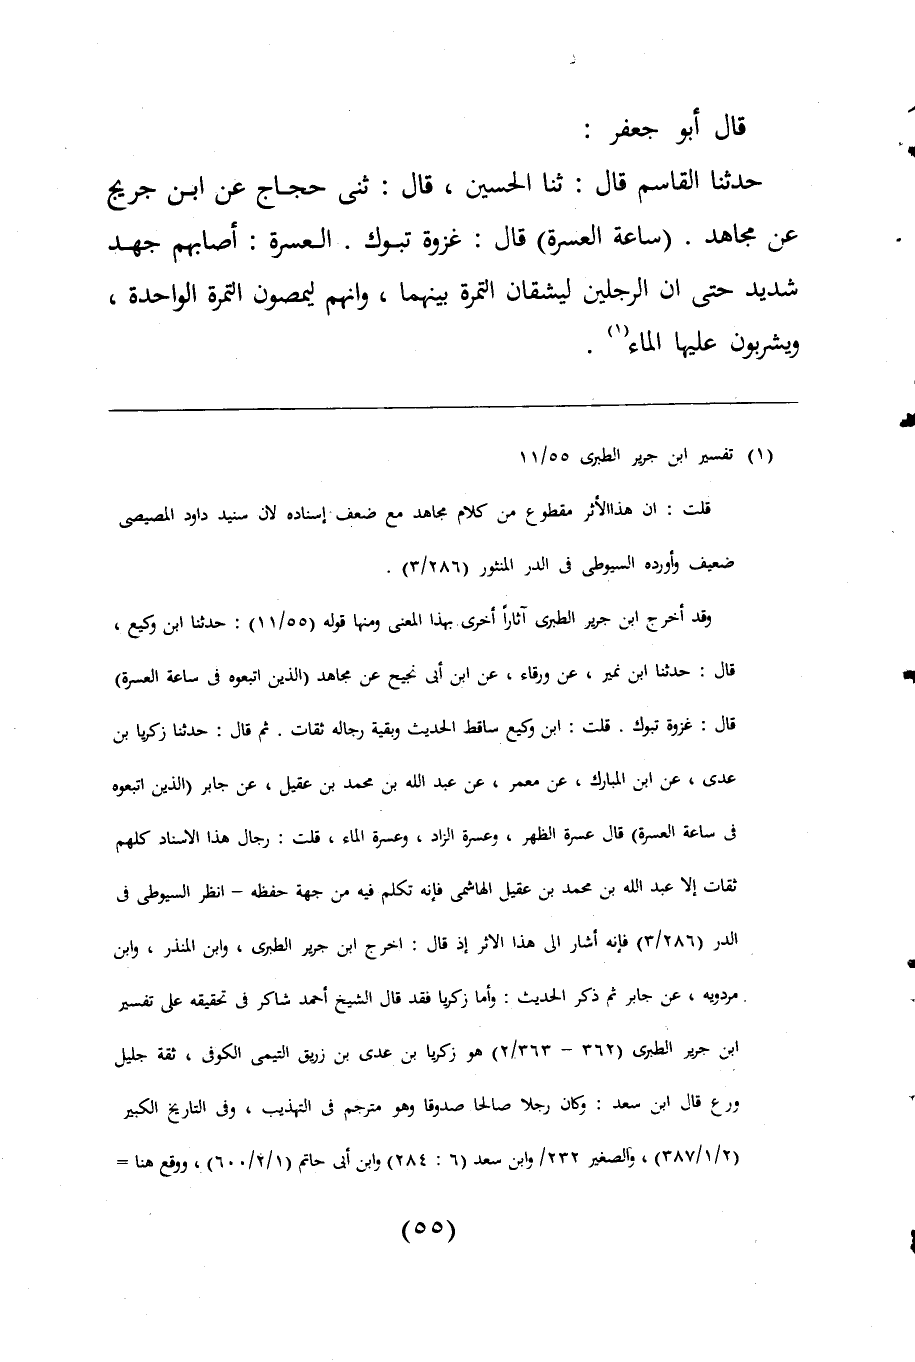 قال أبو جعفر :
حدثنا القاسم قال : ثنا الحسين ، قال : ثنى حجاج عن ابن جريج
عن مجاهد . (ساعة العسرة) قال : غزوة تبوك . العسرة : أصابهم جهد
شديد حتى ان الرجلين ليشقان التمرة بينهما ، وانهم ليمصون التمرة الواحدة ،
ويشربون عليها الماء(١) .
(١) تفسير ابن جرير الطبرى ١١/٥٥
قلت : ان هذاالأثر مقطوع من كلام مجاهد مع ضعف إسناده لان سنيد داود المصيصى
ضعيف وأورده السيوطى فى الدر المنثور (٣/٢٨٦) .
وقد أخرج ابن جرير الطبرى آثاراً أخرى بهذا المعنى ومنها قوله (١١/٥٥) : حدثنا ابن وكيع ،
قال : حدثنا ابن نمير ، عن ورقاء ، عن ابن أبى نجيح عن مجاهد (الذين اتبعوه فى ساعة العسرة)
قال : غزوة تبوك . قلت : ابن وكيع ساقط الحديث وبقية رجاله ثقات . ثم قال : حدثنا زكريا بن
عدى ، عن ابن المبارك ، عن معمر ، عن عبد الله بن محمد بن عقيل ، عن جابر (الذين اتبعوه
فى ساعة العسرة) قال عسرة الظهر ، وعسرة الزاد ، وعسرة الماء ، قلت : رجال هذا الاسناد كلهم
ثقات إلا عبد الله بن محمد بن عقيل الهاشمى فإنه تكلم فيه من جهة حفظه – انظر السيوطى فى
الدر (٣/٢٨٦) فإنه أشار الى هذا الاثر إذ قال : اخرج ابن جرير الطبرى ، وابن المنذر ، وابن
مردويه ، عن جابر ثم ذكر الحديث : وأما زكريا فقد قال الشيخ أحمد شاكر فى تحقيقه على تفسير
ابن جرير الطبرى (٣٦٢ – ٢/٣٦٣) هو زكريا بن عدى بن زريق التيمى الكوفى ، ثقة جليل
ورع قال ابن سعد : وكان رجلا صالحا صدوقا وهو مترجم فى التهذيب ، وفى التاريخ الكبير
(٣٨٧/١/٢) ، والصغير ٢٣٢/ وابن سعد (٦ : ٢٨٤) وابن أبى حاتم (٦٠٠/٢/١) ، ووقع هنا =
(٥٥)